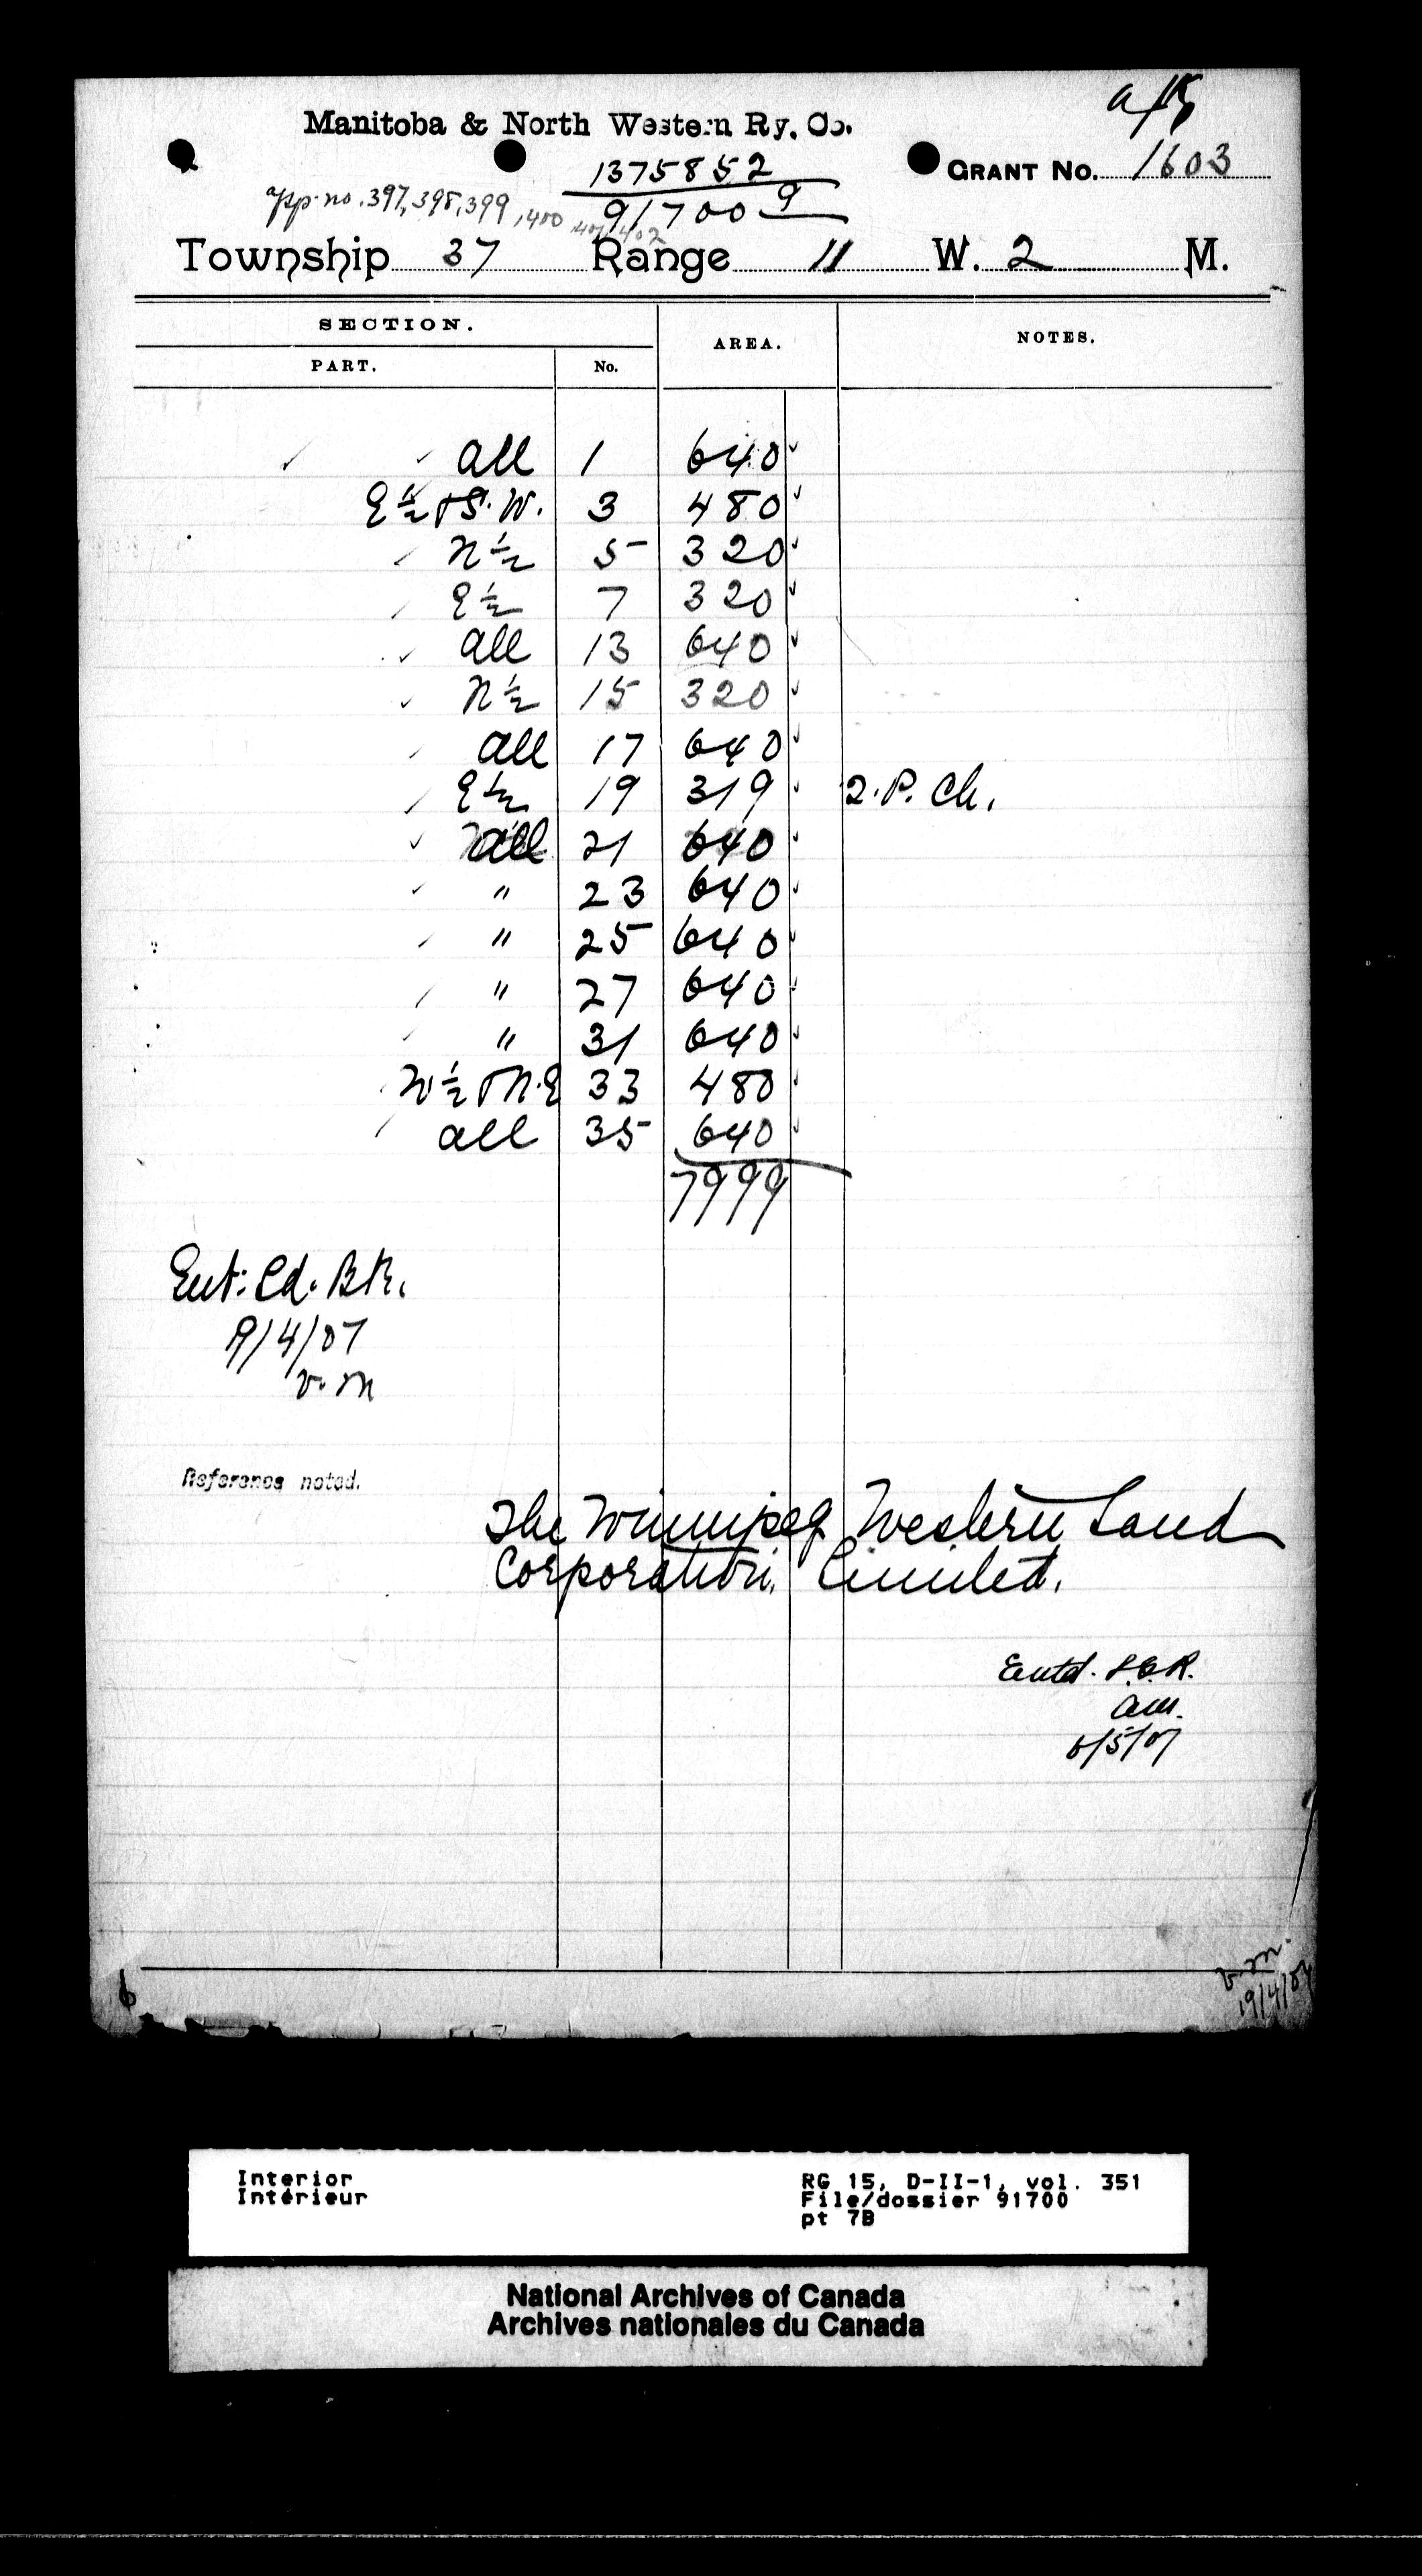 Manitoba & North Western Ry. Co.
1375852
GRANT No. 1603
app. no. 397, 398, 399, 400, 401, 402
91700 9
Township 37 Range 11 W. 2 M.
SECTION. AREA. NOTES.
PART. No.
all 1 640
E ½ & S.W. 3 480
N ½ 5 320
E ½ 7 320
all 13 640
N ½ 15 320
all 17 640
E ½ 19 319 2. P. Ch.
all 21 640
" 23 640
" 25 640
" 27 640
" 31 640
W ½ & N.E 33 480
all 35 640
7999
Ent. Cd. Bk.
9/4/07
v. m
Reference noted.
The Winnipeg Western Land
Corporation, Limited.
Entd. L.G.R.
6/5/07
v. m.
19/4/07
6
Interior RG 15, D-II-1, vol. 351
Intérieur File/dossier 91700
pt 7B
National Archives of Canada
Archives nationales du Canada